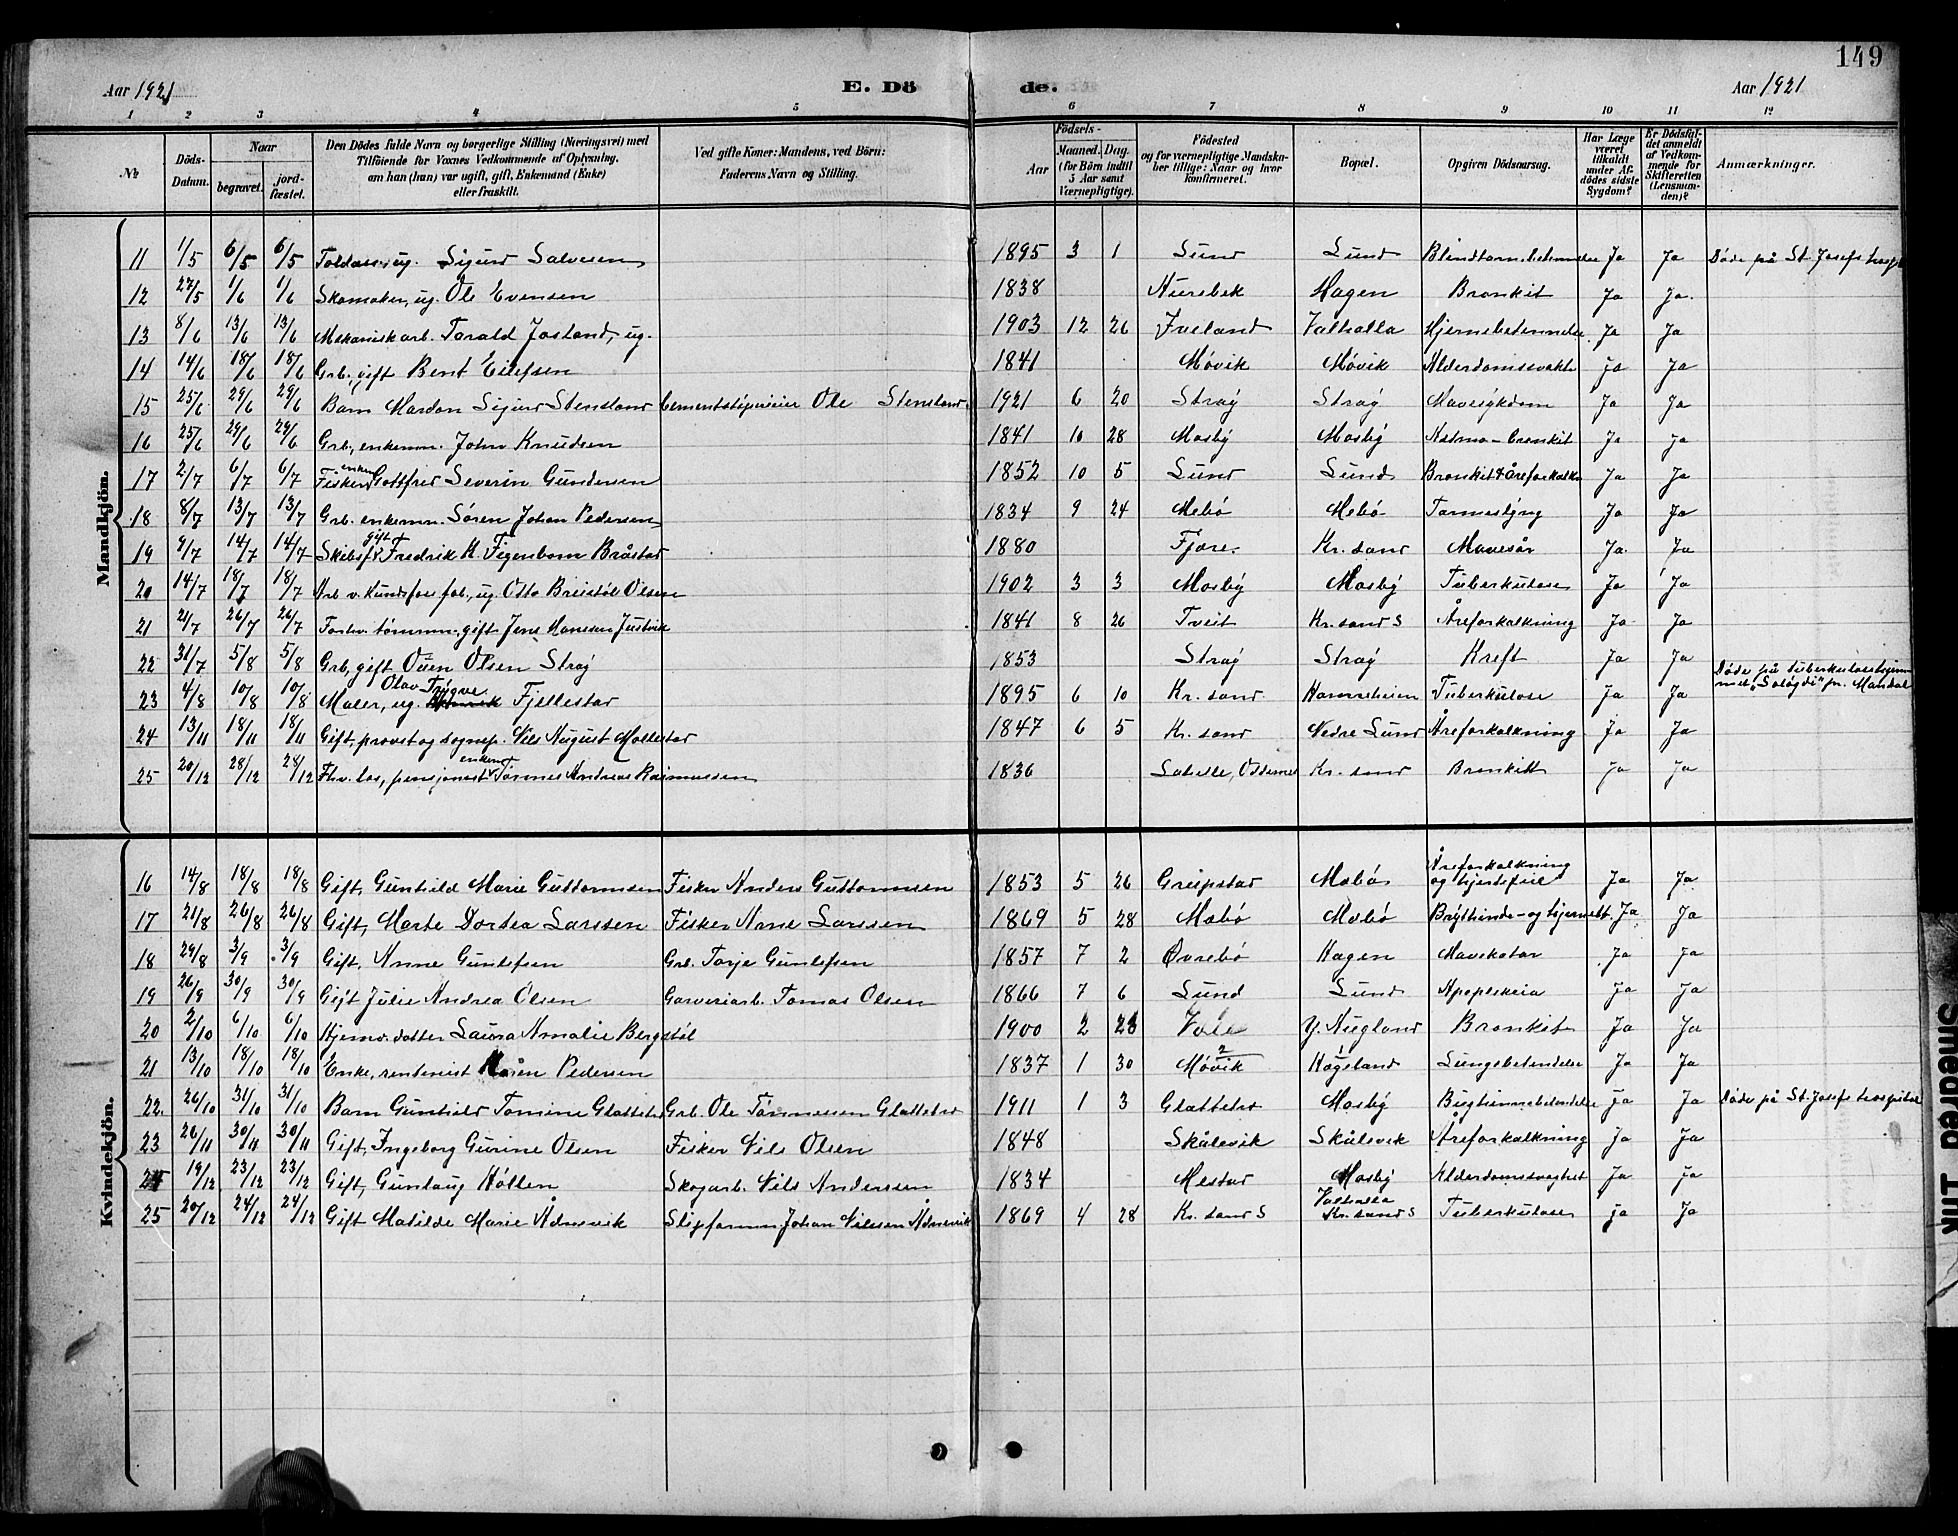 149
Aar 1921 E. Dö de. Aar 1921
1 2 3 4 5 6 7 8 9 10 11 12
№ Döds-Datum. Naar begravet. jordfæstet. Den Dödes fulde Navn og borgerlige Stilling (Næringsvei) med Tilföiende for Voxnes Vedkommende af Oplysning, om han (hun) var ugift, gift, Enkemand (Enke) eller fraskilt. Ved gifte Koner: Mandens, ved Börn: Faderens Navn og Stilling. Födsels- Aar Maaned. Dag. (for Börn indtil 5 Aar samt Værnepligtige). Födested og for værnepligtige Mandskaber tillige: Naar og hvor konfirmeret. Bopæl. Opgiven Dödsaarsag. Har Læge været tilkaldt under Afdödes sidste Sygdom? Er Dödsfaldet anmeldt af Vedkommende for Skifteretten (Lensmanden)? Anmærkninger.
Mandkjön.
11 1/5 6/5 6/5 Toldass. ug. Sigurd Salvesen 1895 3 1 Lund Lund Blindtarmbetendelse Ja Ja Døde på St. Josefs hosp.
12 27/5 1/6 1/6 Skomaker, ug. Ole Evensen 1838 Aurebek Hagen Bronkit Ja Ja.
13 8/6 13/6 13/6 Mekanisk arb. Torald Jostand, ug. 1903 12 26 Iveland Valhalla Hjernebetennelse Ja Ja
14 14/6 18/6 18/6 Grb, gift Bent Eilefsen 1841 Møvik Møvik Alderdomssvakh. Ja Ja
15 25/6 29/6 29/6 Barn Mardon Sigurd Stensland Cementstøperieier Ole Stensland. 1921 6 20 Straj Straj Mavesykdom Ja Ja
16 25/6 29/6 29/6 Grb, enkem. John Knudsen 1841 10 28 Mosby Mosby Astma-bronkit Ja Ja
17 2/7 6/7 6/7 Fisker enkem. Gottfred Severin Gundersen 1852 10 5 Lund Lund Bronkit & Åreforkalkn. Ja Ja
18 8/7 13/7 13/7 Grb. enkem. Søren Johan Pedersen 1834 9 24 Mebø Mebø Tarmeslyng Ja Ja
19 9/7 14/7 14/7 Skibsf. gift Fredrik K. Figenbom Bråstad 1880 Fjære. Kr. sand Mavesår Ja. Ja
20 14/7 18/7 18/7 Arb v. Hundsfos fab., ug. Otto Breistøl Olsen 1902 3 3 Mosby Mosby Tuberkulose Ja Ja
21 21/7 26/7 26/7 Forhv. tømm. gift Jens Hansen Justvik 1841 8 26 Tveit Kr. sand S Åreforkalkning Ja Ja
22 31/7 5/8 5/8 Grb, gift Ouen Olsen Straj 1853 Straj Straj Kreft Ja Ja
23 4/8 10/8 10/8 Maler, ug. Olav Trygve Fjellestad 1895 6 10 Kr. sand Hamreheien Tuberkulose Ja Ja Døde på tuberkulosehjemmet "Soløgdi" pr. Mandal
24 13/11 18/11 18/11 Gift, provst og sognep. Nils August Mollestad 1847 6 5 Kr. sand Nedre Lund Åreforkalkning Ja Ja
25 20/12 28/12 28/12 Fhv. los, pensjonist enkem. Tønnes Andreas Rasmussen 1836 Oddernes Kr. sand Bronkitt Ja Ja
Kvindekjön.
16 14/8 18/8 18/8 Gift, Gunhild Marie Guttormsen Fisker Anders Guttormsen 1853 5 26 Greipstad Mebø Åreforkalkning og hjertefeil Ja Ja
17 21/8 26/8 26/8 Gift, Marte Dortea Larssen Fisker Arne Larssen 1869 5 28 Mebø Mebø Brysthinde- og hjernebet. Ja Ja
18 29/8 3/9 3/9 Gift, Anne Gunlefsen Grb. Torje Gunlefsen 1857 7 2 Øvrebø Hagen Mavekatar Ja Ja
19 26/9 30/9 30/9 Gift Julie Andrea Olsen Garveriarb. Tomas Olsen 1866 7 6 Lund Lund Apopleksia Ja Ja
20 2/10 6/10 6/10 Hjemv. datter Laura Amalie Bergstøl 1900 2 Y. Augland Bronkit Ja Ja
21 13/10 18/10 18/10 Enke, rentenist Maren Pedersen 1837 1 30 Møvik Kogsland Lungebetendelse Ja Ja
22. 26/10 31/10 31/10 Barn Gunhild Tomine Glattetre Grb. Ole Tønnessen Glattetre 1911 1 3 Glattetre Mosby Bughinnebetendelse Ja Ja Døde på St. Josefs hospital
23 26/11 30/11 30/11 Gift, Ingeborg Gurine Olsen Fisker Nils Olsen 1848 Skålevik Skålevik Åreforkalkning Ja Ja
24 19/12 23/12 23/12 Gift, Gunlaug Hollen Skogarb. Nils Anderssen 1834 Mestad Mosby Alderdomssvaghet Ja Ja
25 20/12 24/12 24/12 Gift Matilde Marie Ådnevik Slipformn Johan Nilssen Ådnevik 1869 4 28 Kr. sand S Valhalla Kr. sand S Tuberkulose Ja Ja
Smeared Ink